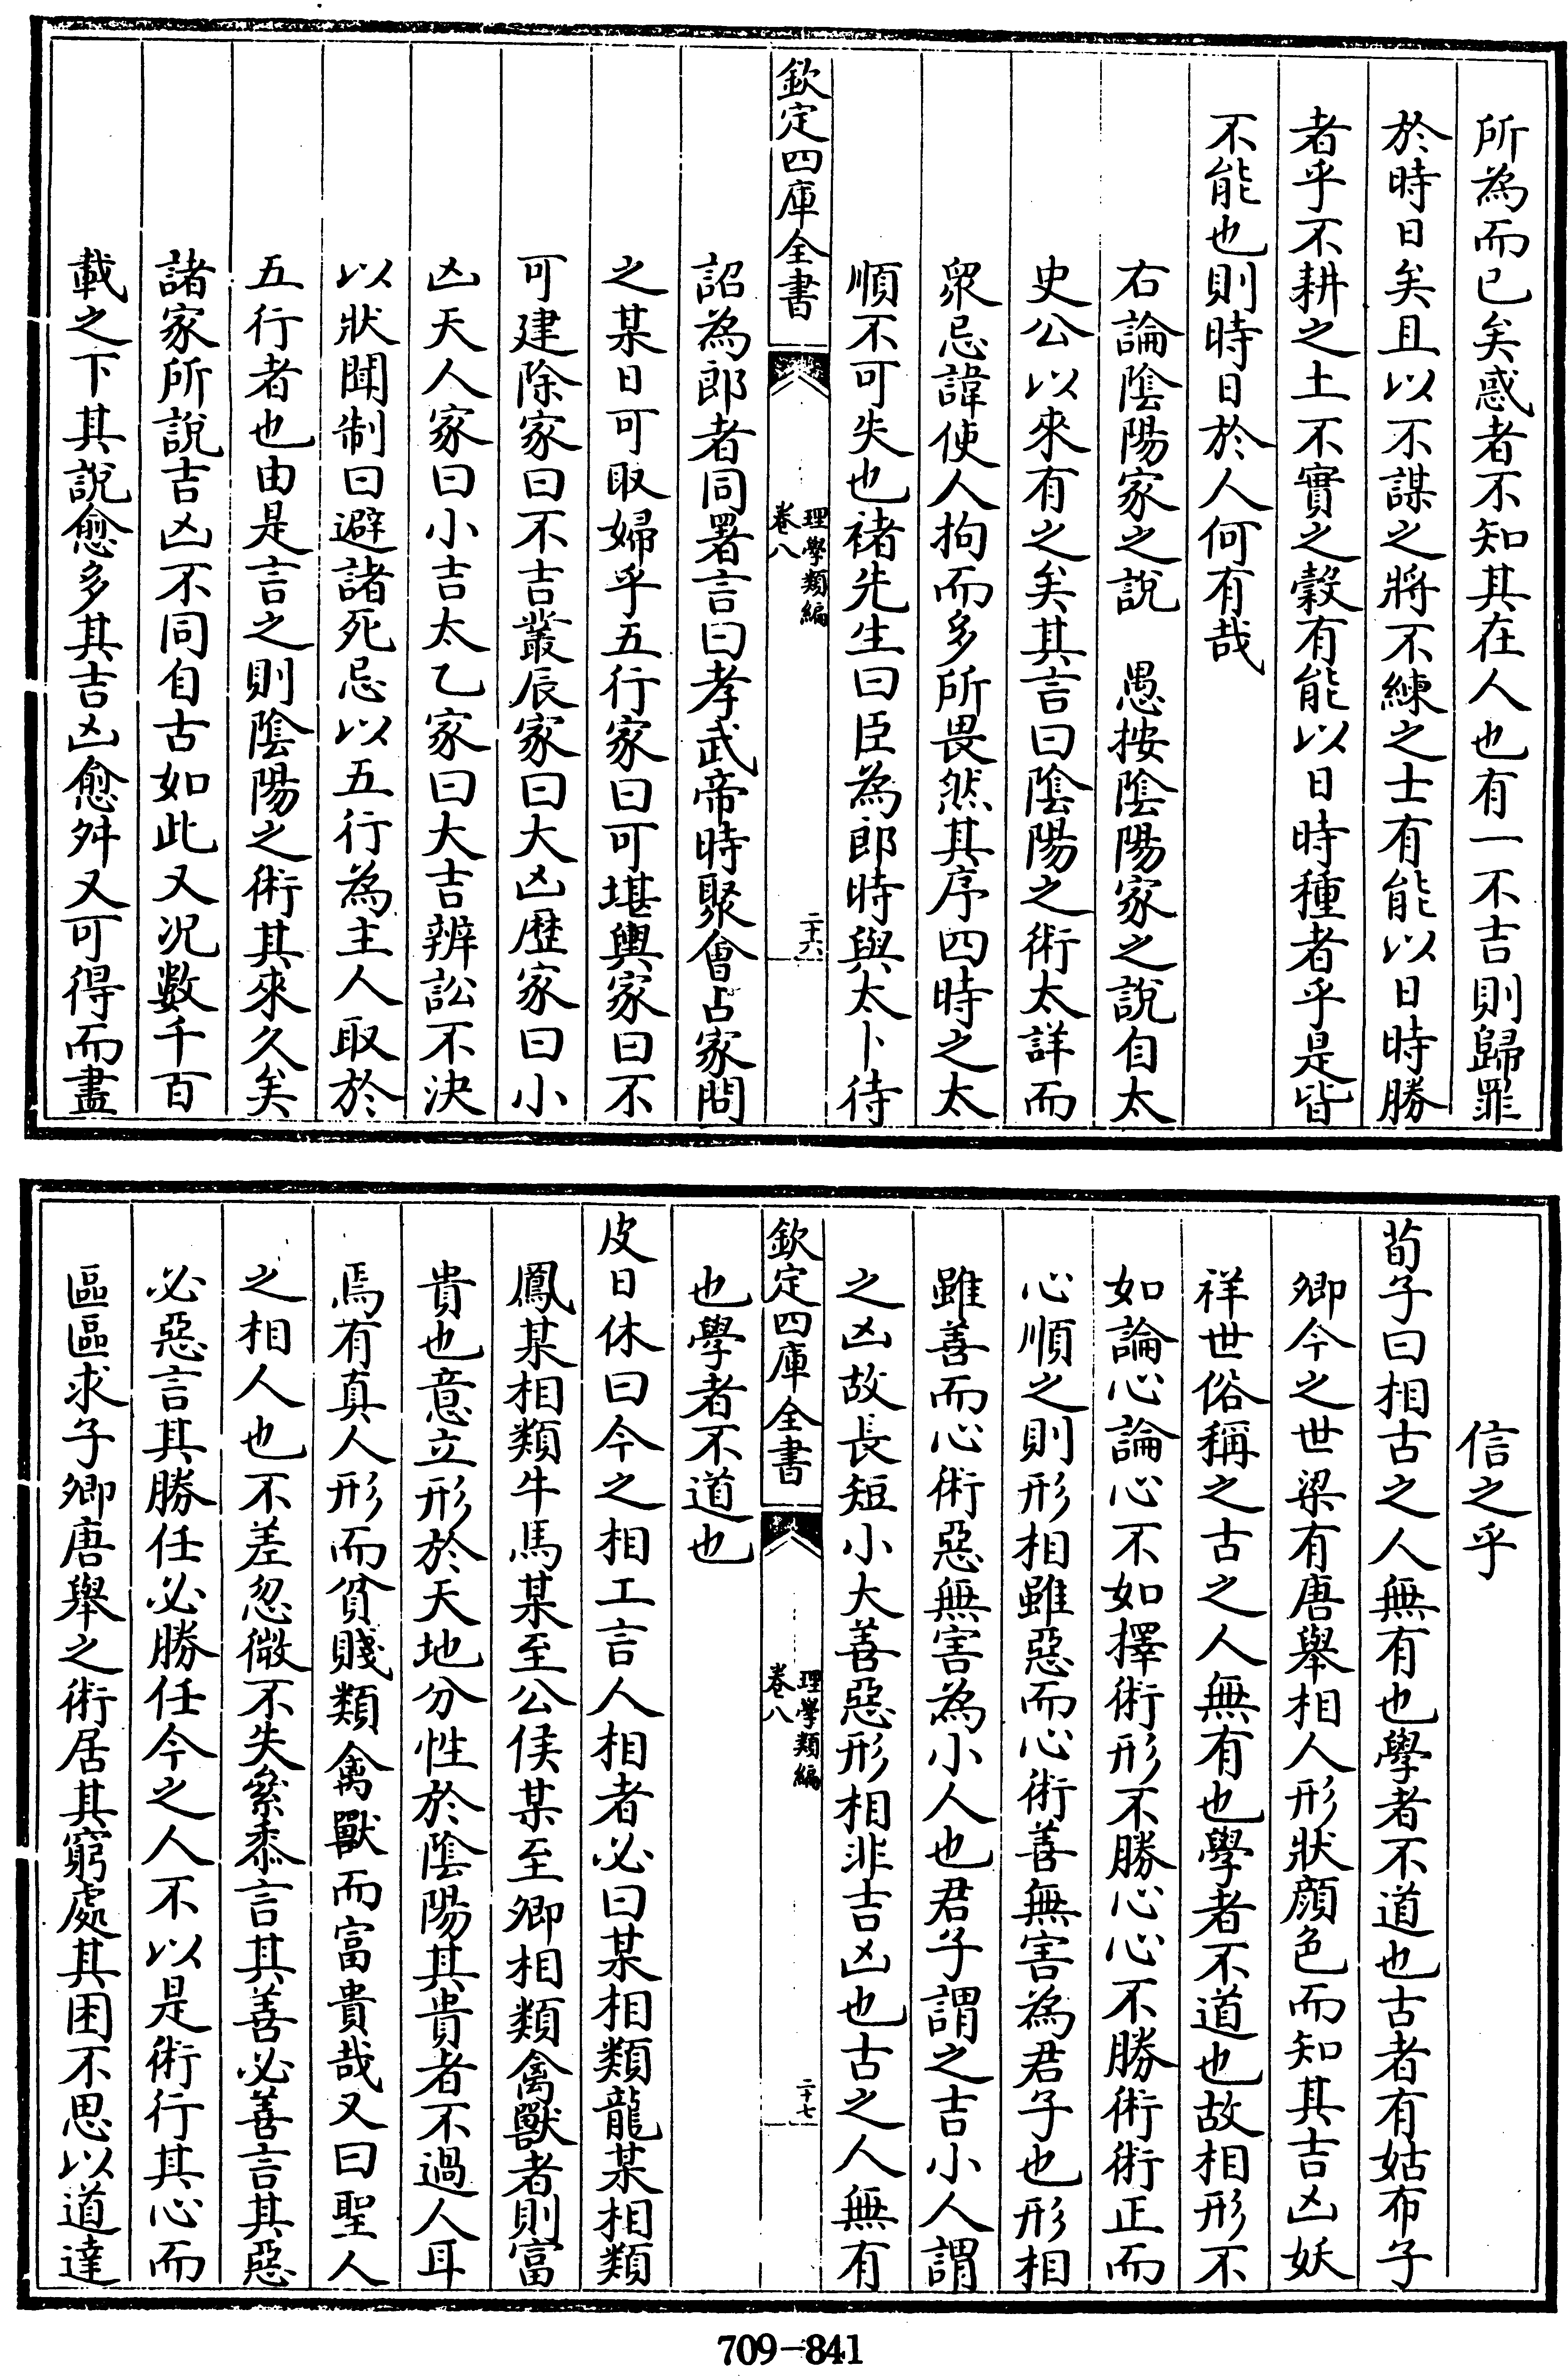 所為而已矣惑者不知其在人也有一不吉則歸罪
於時日矣且以不謀之將不練之士有能以日時勝
者乎不耕之土不實之穀有能以日時種者乎是皆
不能也則時日於人何有哉
右論陰陽家之說　愚按陰陽家之說自太
史公以來有之矣其言曰陰陽之術太詳而
衆忌諱使人拘而多所畏然其序四時之太
順不可失也褚先生曰臣為郎時與太卜待
欽定四庫全書
理學類編
卷八
二十六
詔為郎者同署言曰孝武帝時聚會占家問
之某日可取婦乎五行家曰可堪輿家曰不
可建除家曰不吉叢辰家曰大凶歷家曰小
凶天人家曰小吉太乙家曰大吉辨訟不決
以狀聞制曰避諸死忌以五行為主人取於
五行者也由是言之則陰陽之術其來久矣
諸家所說吉凶不同自古如此又况數千百
載之下其說愈多其吉凶愈舛又可得而盡
信之乎
荀子曰相古之人無有也學者不道也古者有姑布子
卿今之世梁有唐舉相人形狀顔色而知其吉凶妖
祥世俗稱之古之人無有也學者不道也故相形不
如論心論心不如擇術形不勝心心不勝術術正而
心順之則形相雖惡而心術善無害為君子也形相
雖善而心術惡無害為小人也君子謂之吉小人謂
之凶故長短小大善惡形相非吉凶也古之人無有
欽定四庫全書
理學類編
卷八
二十七
也學者不道也
皮日休曰今之相工言人相者必曰某相類龍某相類
鳳某相類牛馬某至公侯某至卿相類禽獸者則富
貴也意立形於天地分性於陰陽其貴者不過人耳
焉有真人形而貧賤類禽獸而富貴哉又曰聖人
之相人也不差忽微不失絫黍言其善必善言其惡
必惡言其勝任必勝任今之人不以是術行其心而
區區求子卿唐舉之術居其窮處其困不思以道達
709-841